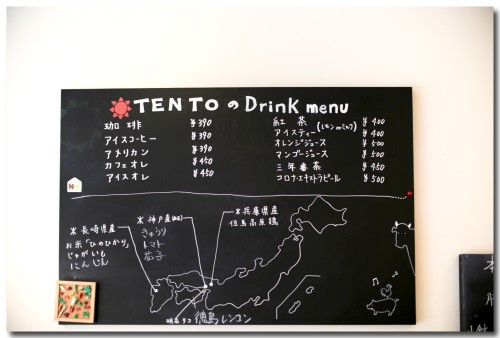 TENTO の Drink menu
珈琲 ¥390
アイスコーヒー ¥390
アメリカン ¥390
カフェオレ ¥450
アイスオレ ¥450
紅茶 (レモン or ミルク) ¥400
アイスティー ¥400
オレンジジュース ¥500
マンゴージュース ¥500
三年番茶 ¥450
コロナ・エキストラビール ¥500
※長崎県産
お米「ひのひかり」
じゃがいも
にんじん
※神戸産
きゅうり
トマト
茄子
※兵庫県産
但馬高原鶏
明石タコ
徳島レンコン